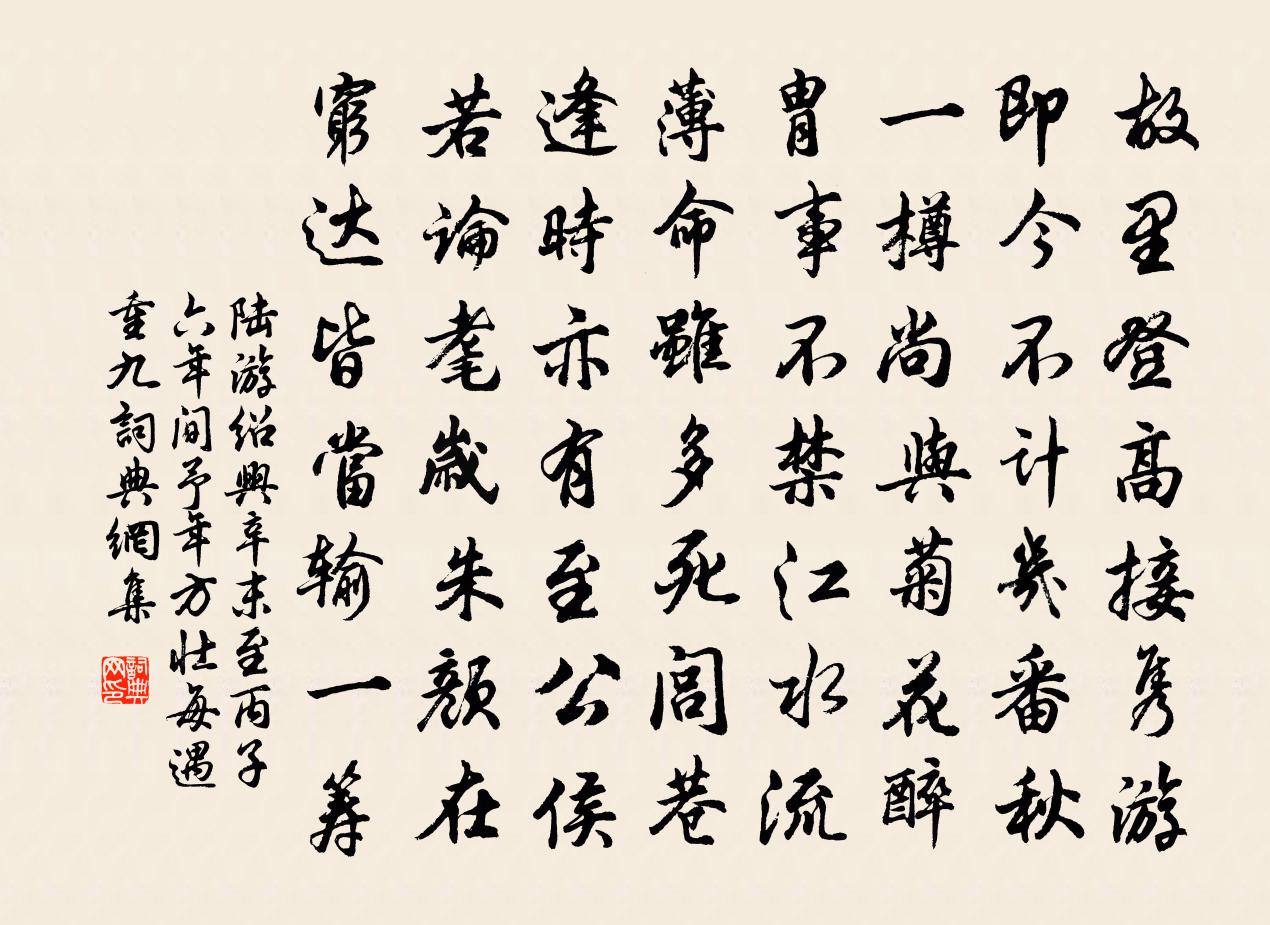 故里登高接隽游
即今不计幾番秋
一樽尚與菊花醉
胄事不禁江水流
薄命雖多死閭巷
逢時亦有至公侯
若論耄歲朱顏在
窮达皆當输一筹
陆游绍興辛未至丙子
六年间予年方壮每遇
重九詞典網集
詞典
网印